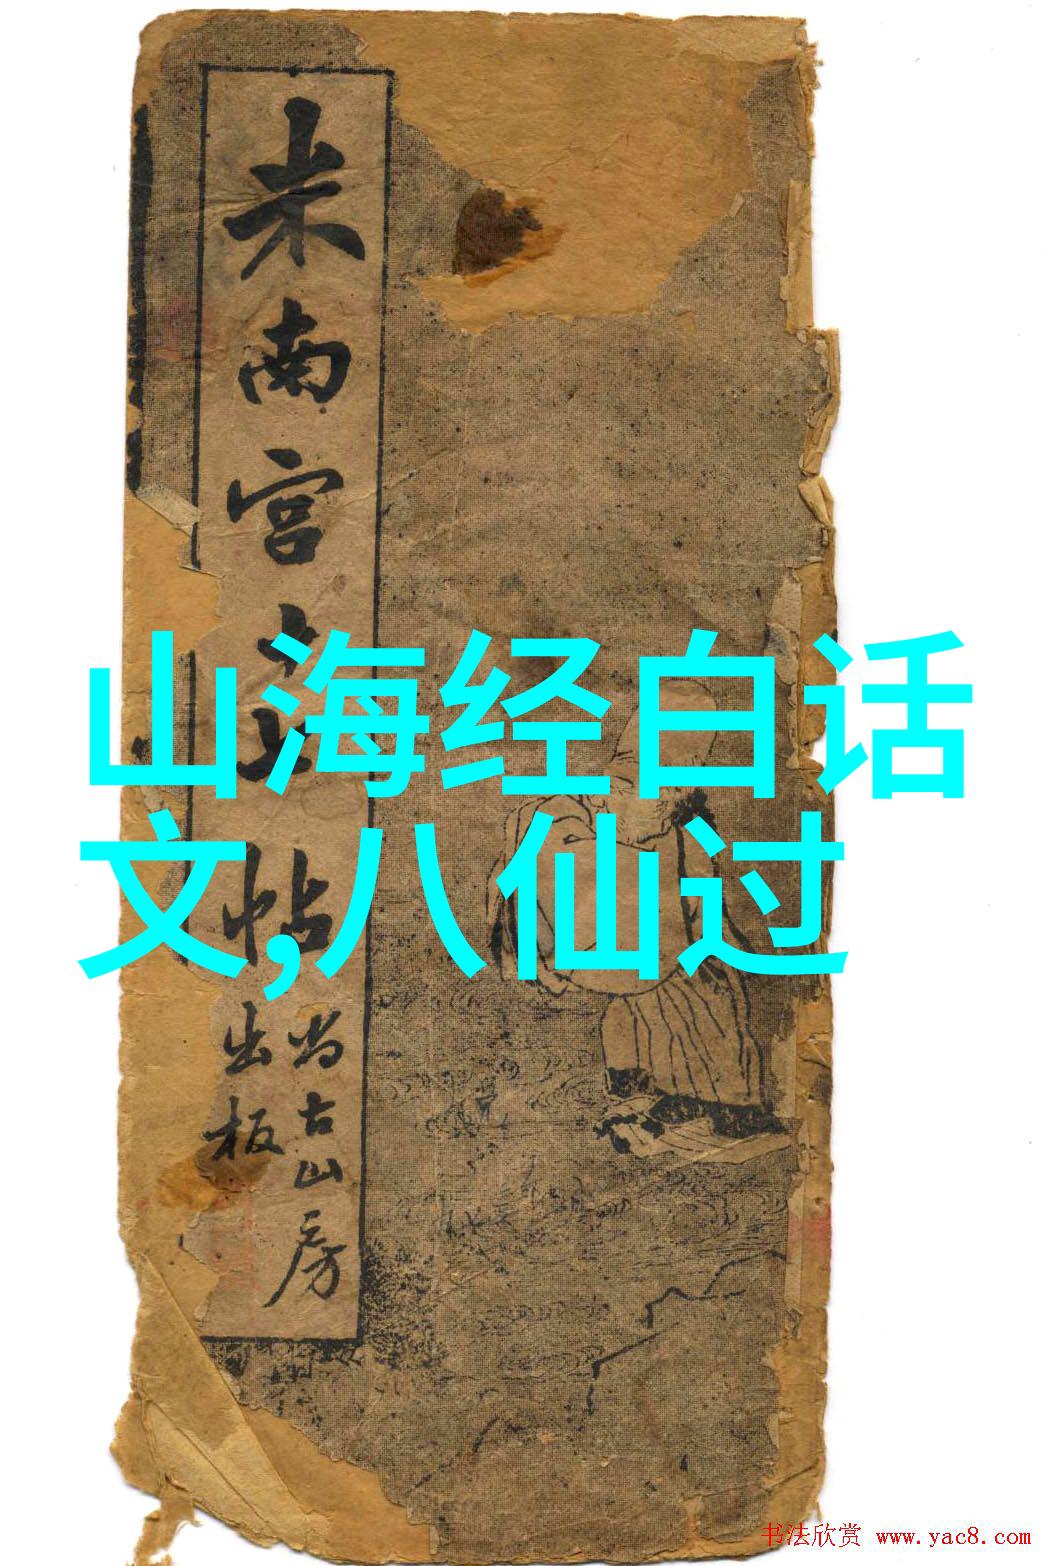 米南宫十七帖
尚古山房
出板
山海经白话
文,八仙过
书法欣赏 www.yac8.com